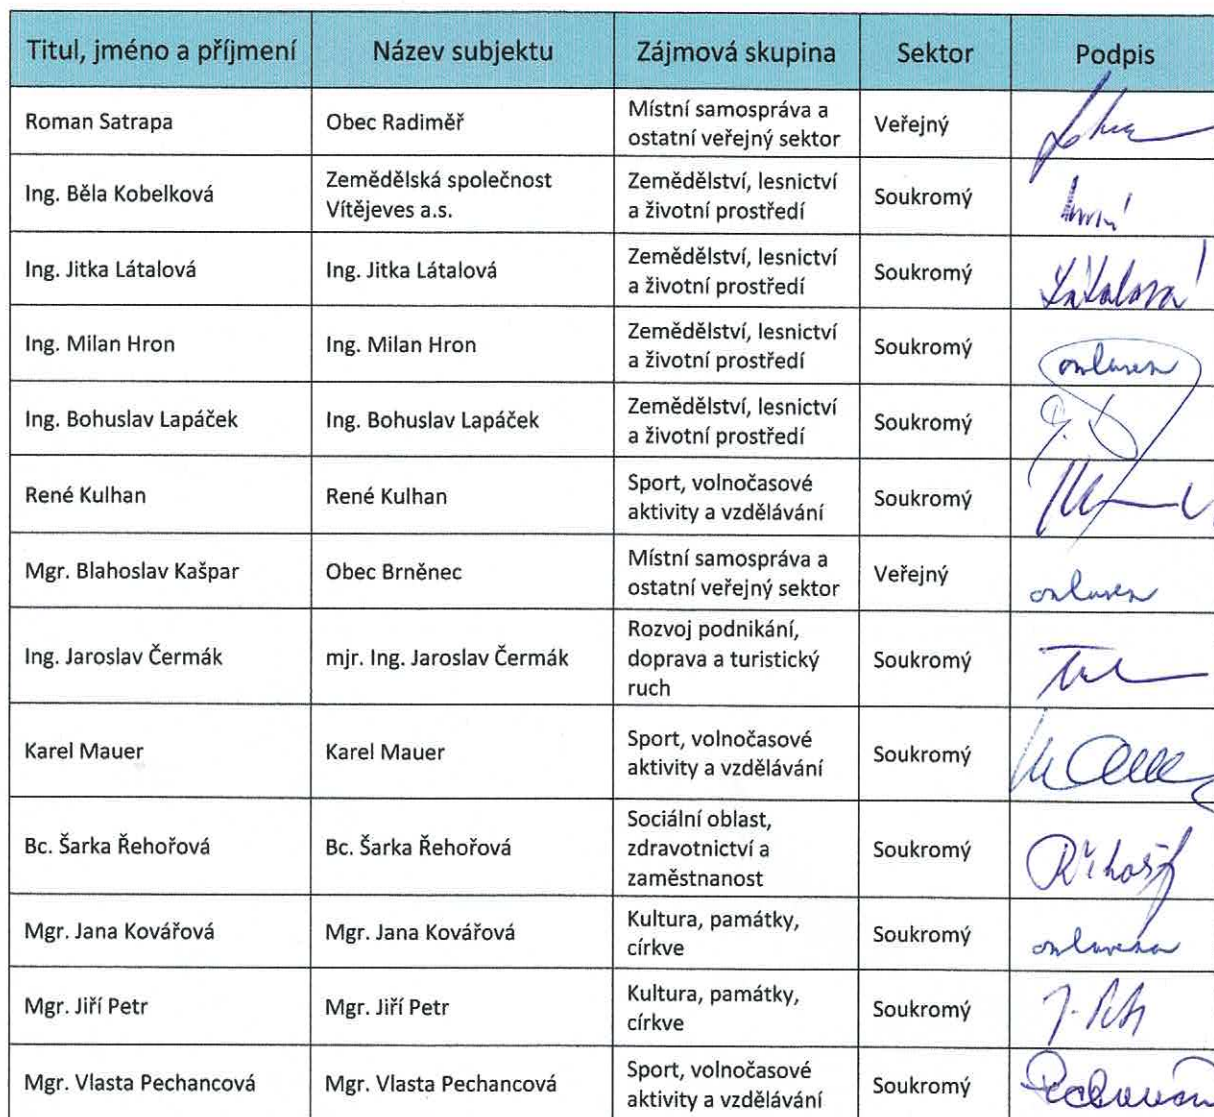 Titul, jméno a příjmení Název subjektu Zájmová skupina Sektor Podpis
Roman Satrapa Obec Radiměř Místní samospráva a ostatní veřejný sektor Veřejný
Ing. Běla Kobelková Zemědělská společnost Vítějeves a.s. Zemědělství, lesnictví a životní prostředí Soukromý
Ing. Jitka Látalová Ing. Jitka Látalová Zemědělství, lesnictví a životní prostředí Soukromý Látalová
Ing. Milan Hron Ing. Milan Hron Zemědělství, lesnictví a životní prostředí Soukromý omluven
Ing. Bohuslav Lapáček Ing. Bohuslav Lapáček Zemědělství, lesnictví a životní prostředí Soukromý
René Kulhan René Kulhan Sport, volnočasové aktivity a vzdělávání Soukromý
Mgr. Blahoslav Kašpar Obec Brněnec Místní samospráva a ostatní veřejný sektor Veřejný omluven
Ing. Jaroslav Čermák mjr. Ing. Jaroslav Čermák Rozvoj podnikání, doprava a turistický ruch Soukromý
Karel Mauer Karel Mauer Sport, volnočasové aktivity a vzdělávání Soukromý
Bc. Šarka Řehořová Bc. Šarka Řehořová Sociální oblast, zdravotnictví a zaměstnanost Soukromý
Mgr. Jana Kovářová Mgr. Jana Kovářová Kultura, památky, církve Soukromý omluvena
Mgr. Jiří Petr Mgr. Jiří Petr Kultura, památky, církve Soukromý
Mgr. Vlasta Pechancová Mgr. Vlasta Pechancová Sport, volnočasové aktivity a vzdělávání Soukromý